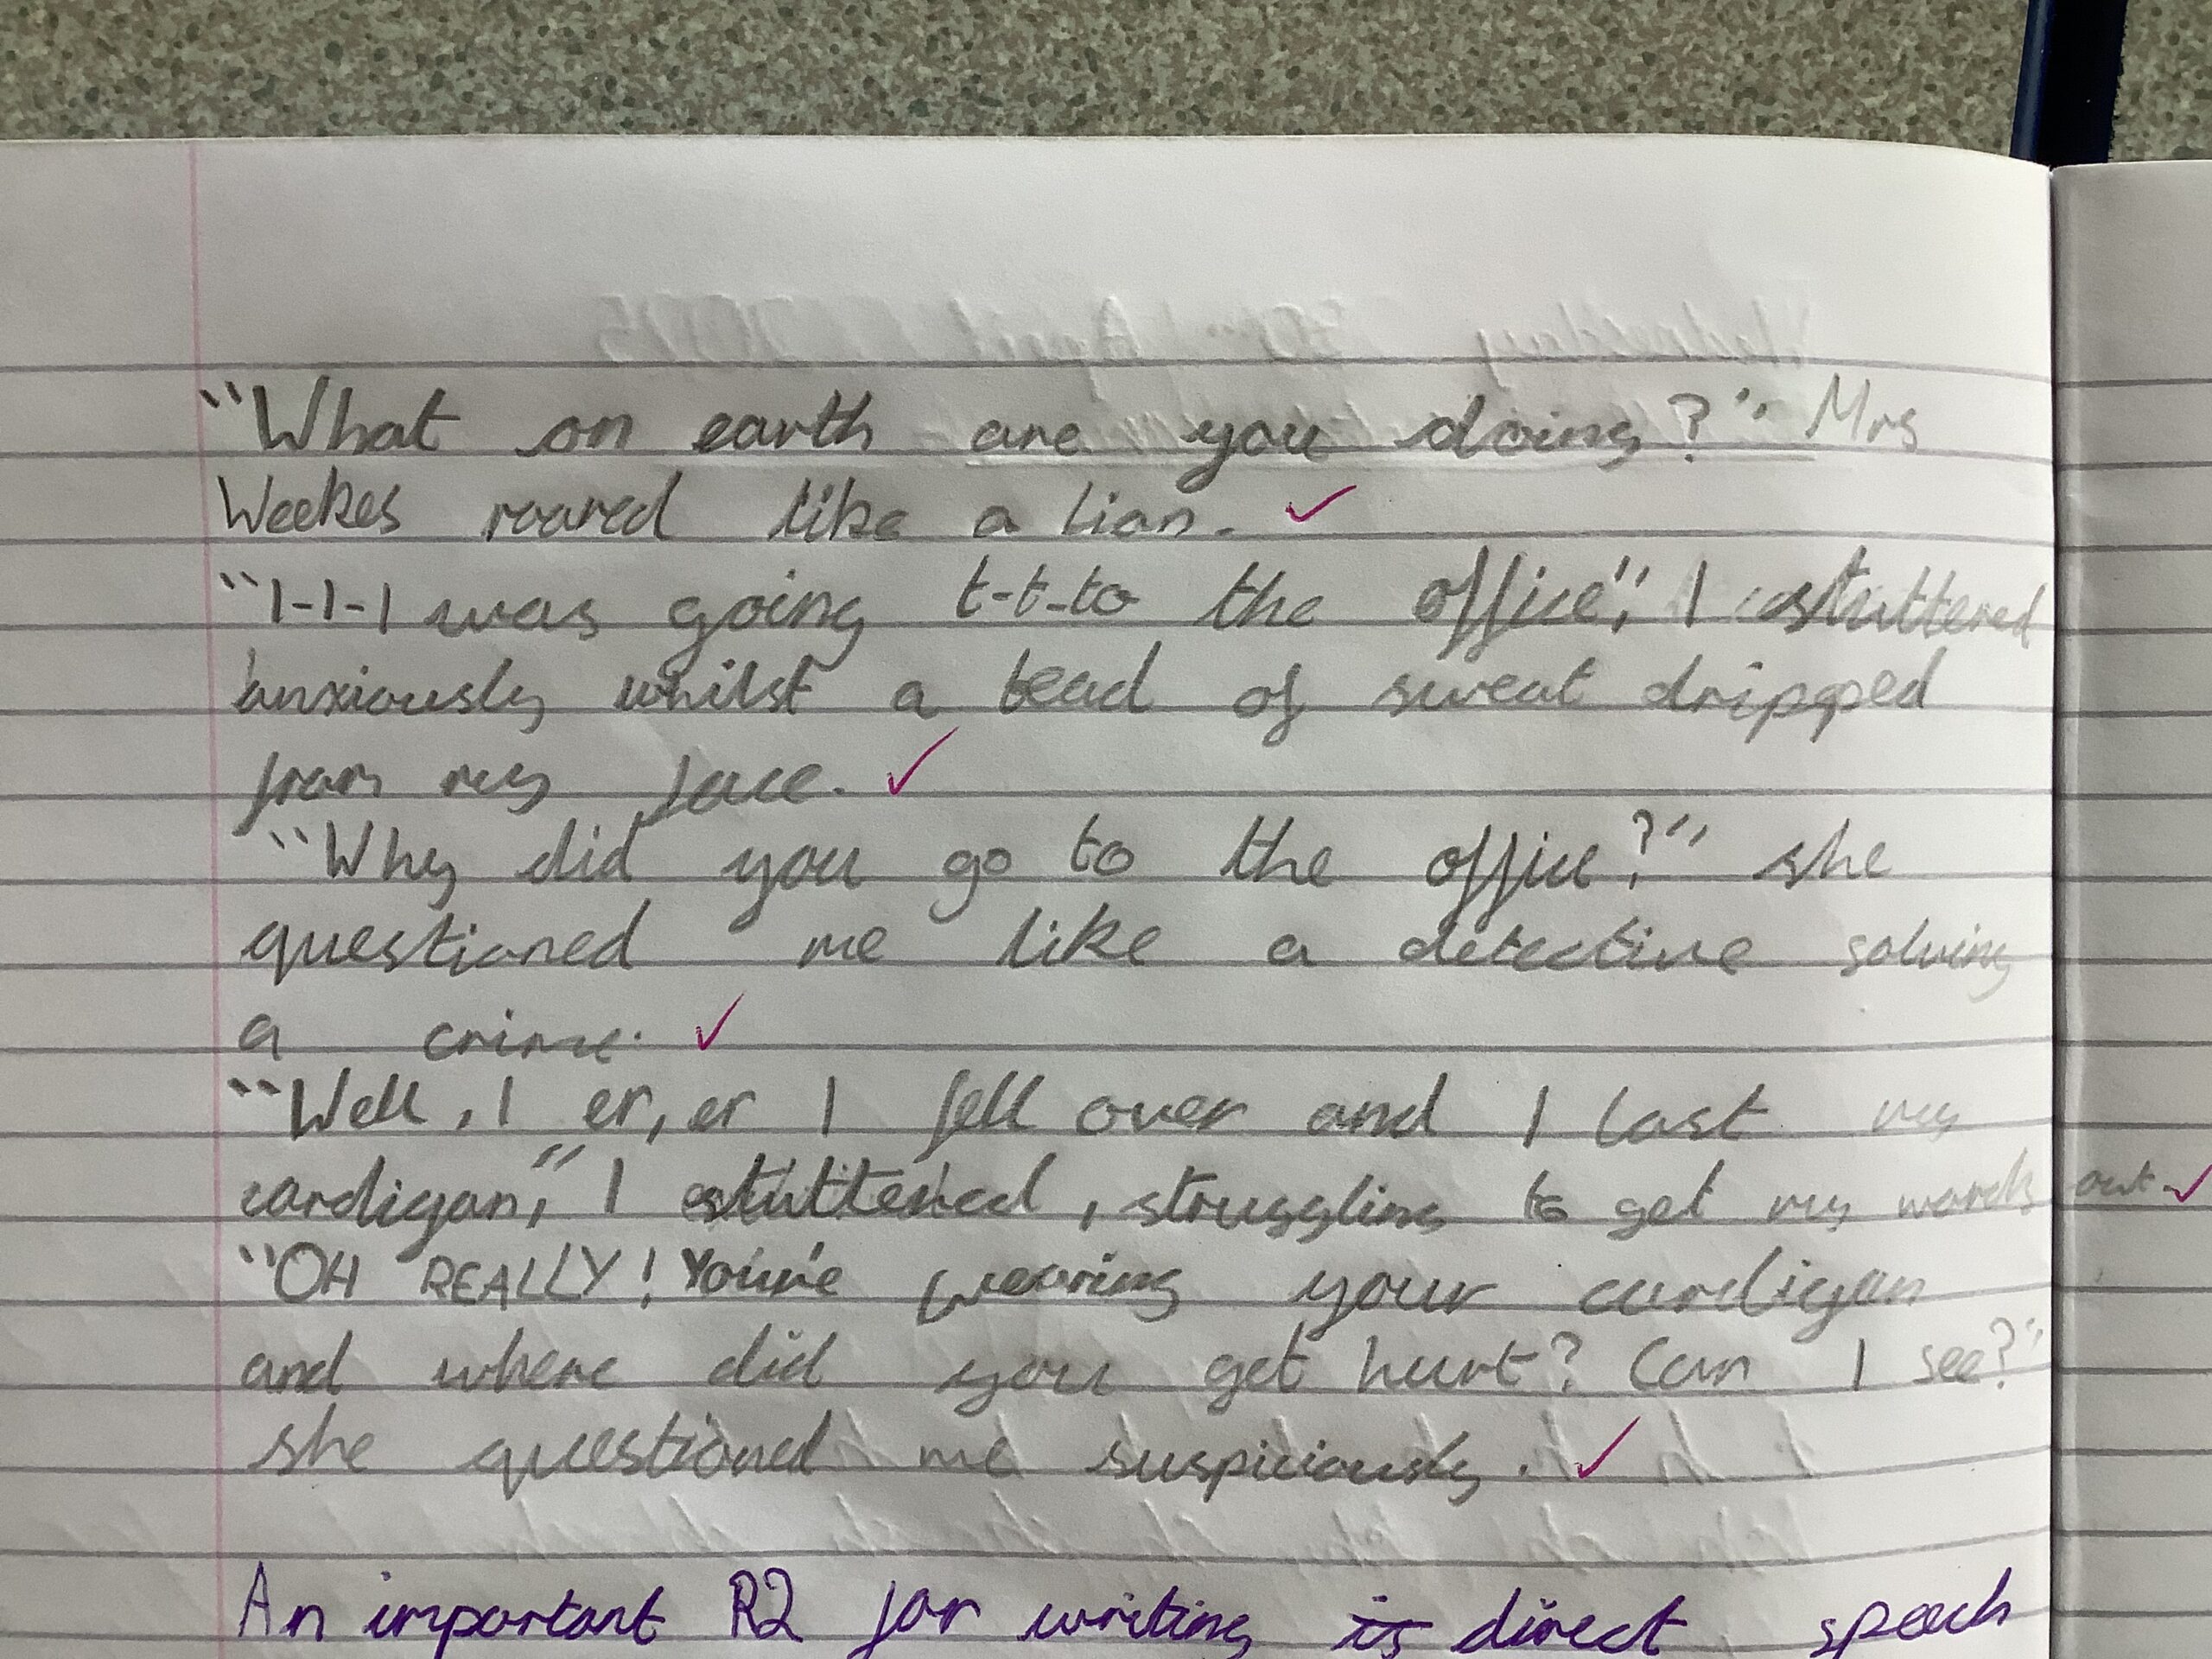 "What on earth are you doing?" Mrs
Weekes roared like a lion.
"I-I-I was going t-t-to the office", I stuttered
anxiously whilst a bead of sweat dripped
from my face.
"Why did you go to the office?" she
questioned me like a detective solving
a crime.
"Well, I er, er I fell over and I lost my
cardigan," I stuttered, struggling to get my words out.
"OH REALLY! You're wearing your cardigan
and where did you get hurt? Can I see?"
she questioned me suspiciously.
An important R2 for writing is direct speech